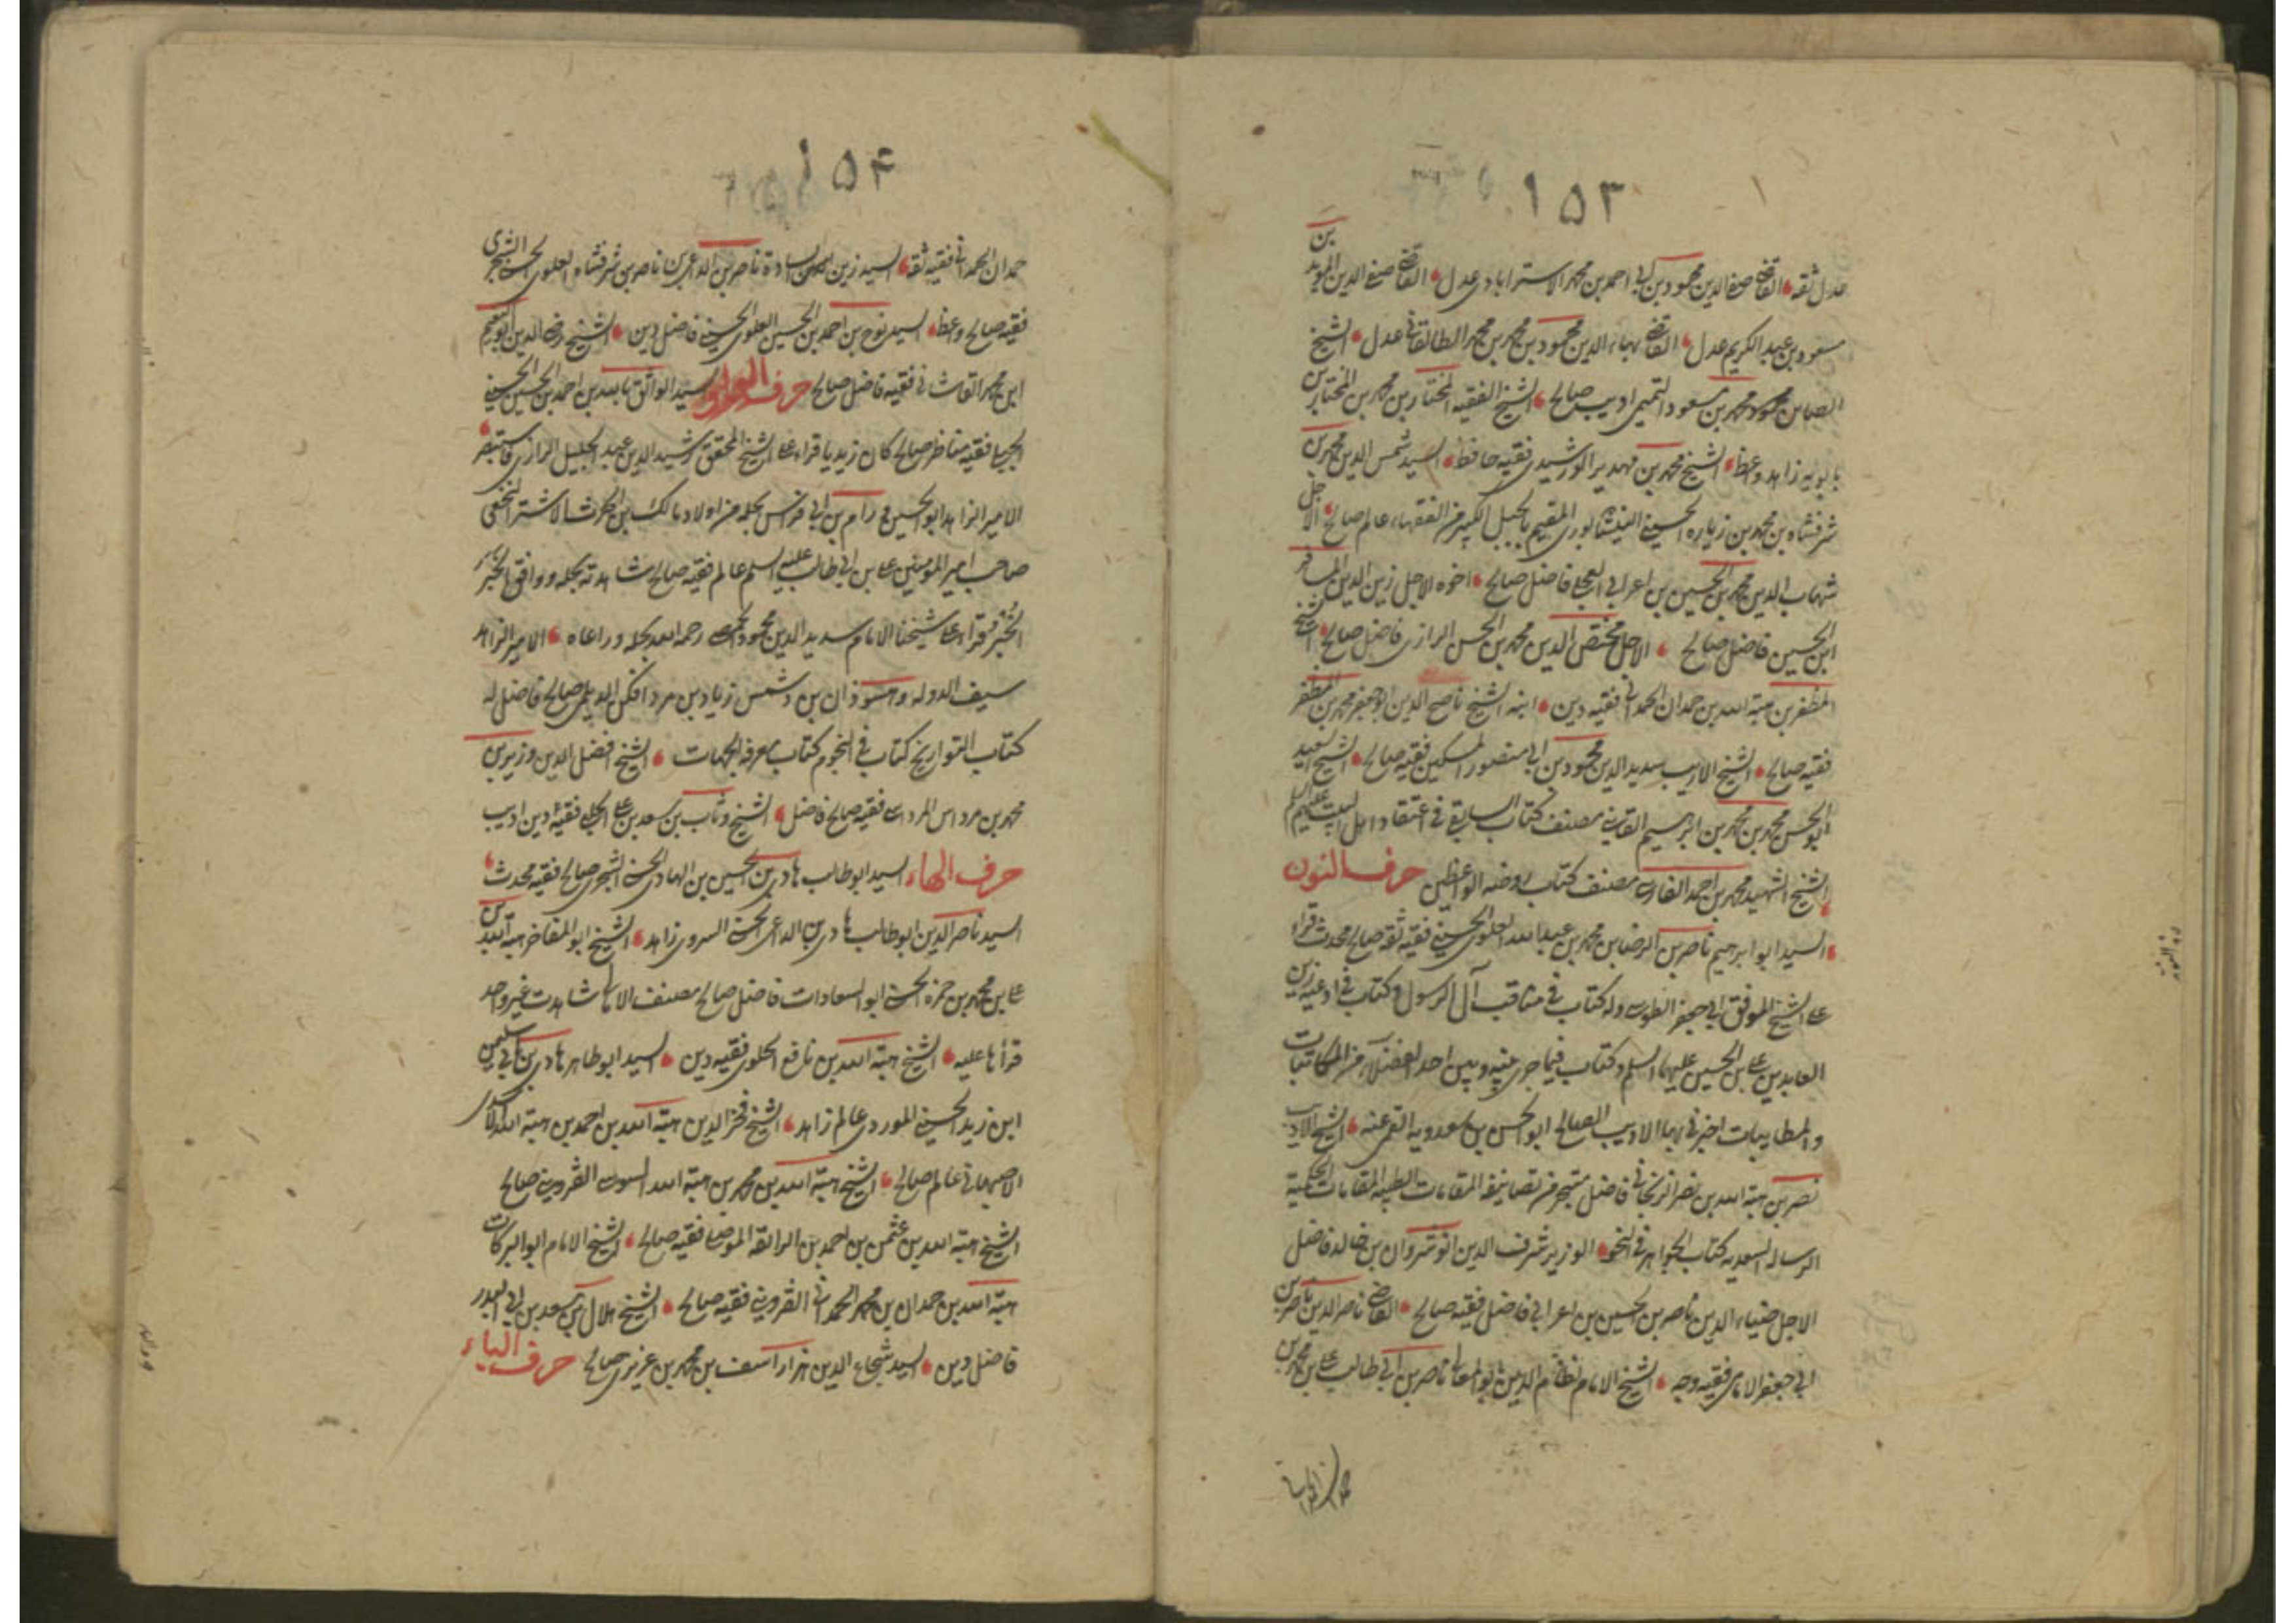 ١٥٣
عدل ثقه القاضي صفي الدين محمود بن ابي احمد بن محمد الاسترابادي عدل القاضي صفي الدين المؤيد بن
مسعود بن عبد الكريم عدل القاضي بهاء الدين محمود بن محمد بن محمد الطالقاني عدل الشيخ
محمد بن مسعود التميمي اديب صالح الشيخ الفقيه المختار بن محمد بن المختار بن
بابويه زاهد واعظ الشيخ محمد بن فقيه حافظ السيد شمس الدين محمد بن
شرفشاه بن محمد بن زياره الحسيني النيشابوري المقيم بالجبل الكبير من الفقهاء عالم صالح الاجل
شهاب الدين محمد بن الحسين بن اعرابي العجلي فاضل صالح اخوه الاجل زين الدين المسافر
ابن الحسين فاضل صالح الاجل مختص الدين محمد بن الحسن الرازي فاضل صالح الشيخ
المظفر بن هبة الله بن حمدان الحمداني فقيه دين ابنه الشيخ ناصح الدين ابو جعفر محمد بن المظفر
فقيه صالح الشيخ الاديب سديد الدين محمود بن ابي منصور المسكني فقيه صالح الشيخ السعيد
ابو الحسن محمد بن محمد بن ابرهيم القايني مصنف كتاب السابق في اعتقاد اهل البيت عليهم السلم
الشيخ الشهيد محمد بن احمد الفارسي مصنف كتاب روضه الواعظين حرف النون
السيد ابو ابرهيم ناصر بن الرضا بن محمد بن عبد الله العلوي الحسيني فقيه ثقه صالح محدث قراء
على الشيخ الموفق ابي جعفر الطوسي وله كتاب في مناقب آل الرسول و كتاب في ادعيه زين
العابدين علي بن الحسين عليهما السلم و كتاب فيما جرى بينه وبين احد الفضلاء من المكاتبات
والمطايبات اخبرني بها الاديب الصالح ابو الحسن بن سعدويه القمي عنه الشيخ الاديب
نصر بن هبة الله بن نصر الزنجاني فاضل متبحر من تصانيفه المقامات الطبيه المقامات الحكميه
الرساله السعديه كتاب الجواهر في النحو الوزير شرف الدين انوشروان بن خالد فاضل
الاجل ضياء الدين ناصر بن الحسين بن اعرابي فاضل فقيه صالح القاضي ناصر الدين ناصر بن
ابي جعفر الامامي فقيه وجه الشيخ الامام نظام الدين ابو المعالي ناصر بن ابي طالب علي بن محمد بن
حمدان الحمداني
١٥۴
حمدان الحمداني فقيه ثقه السيد زين السادة ناصر بن الداعي بن ناصر بن شرفشاه العلوي الحسني الشجري
فقيه صالح واعظ السيد نوح بن احمد بن الحسين العلوي الحسيني فاضل دين الشيخ رضي الدين ابو النعيم
ابن محمد القاشاني فقيه فاضل صالح حرف الواو السيد الواثق بالله بن احمد بن الحسين الحسيني
الجيلي فقيه مناظر صالح كان زيديا قراء على الشيخ المحقق رشيد الدين عبد الجليل الرازي فاستبصر
الامير الزاهد ابو الحسين ورام بن ابي فراس بحله من اولاد مالك بن الحرث الاشتر النخعي
صاحب امير المؤمنين علي بن ابي طالب عليه السلم عالم فقيه صالح شاهدته بحله ووافق الخبر
الخبر قراء على شيخنا الامام سديد الدين محمود الحمصي رحمه الله بحله وراعاه الامير الزاهد
سيف الدوله وهسوذان بن دشمن زياد بن مردافكن الديلمي صالح فاضل له
كتاب التواريخ كتاب في النجوم كتاب معرفه الجهات الشيخ افضل الدين وزير بن
محمد بن مرداس المرداسي فقيه صالح فاضل الشيخ وثاب بن سعد بن علي الحلي فقيه دين اديب
حرف الهاء السيد ابو طالب هادي بن الحسين بن الهادي الحسني الشجري صالح فقيه محدث
السيد ناصر الدين ابو طالب هادي بن الداعي الحسني السروي زاهد الشيخ ابو المفاخر هبة الله بن
علي بن محمد بن حمزه الحسني ابو السعادات فاضل صالح مصنف الامالي شاهدت غير واحد
قراها عليه الشيخ هبة الله بن نافع الحلوي فقيه دين السيد ابو طاهر هادي بن ابي سليمن
ابن زيد الحسيني الموردي عالم زاهد الشيخ فخر الدين هبة الله بن احمد بن هبة الله الاسدي
الاصبهاني عالم صالح الشيخ هبة الله بن محمد بن هبة الله السوسي القزويني صالح
الشيخ هبة الله بن عثمن بن احمد بن الرائقه الموصلي فقيه صالح الشيخ الامام ابو البركات
هبة الله بن حمدان بن محمد الحمداني القزويني فقيه صالح الشيخ هلال بن سعد بن ابي البدر
فاضل دين السيد شجاع الدين هزار اسف بن محمد بن عزيزي صالح حرف الياء